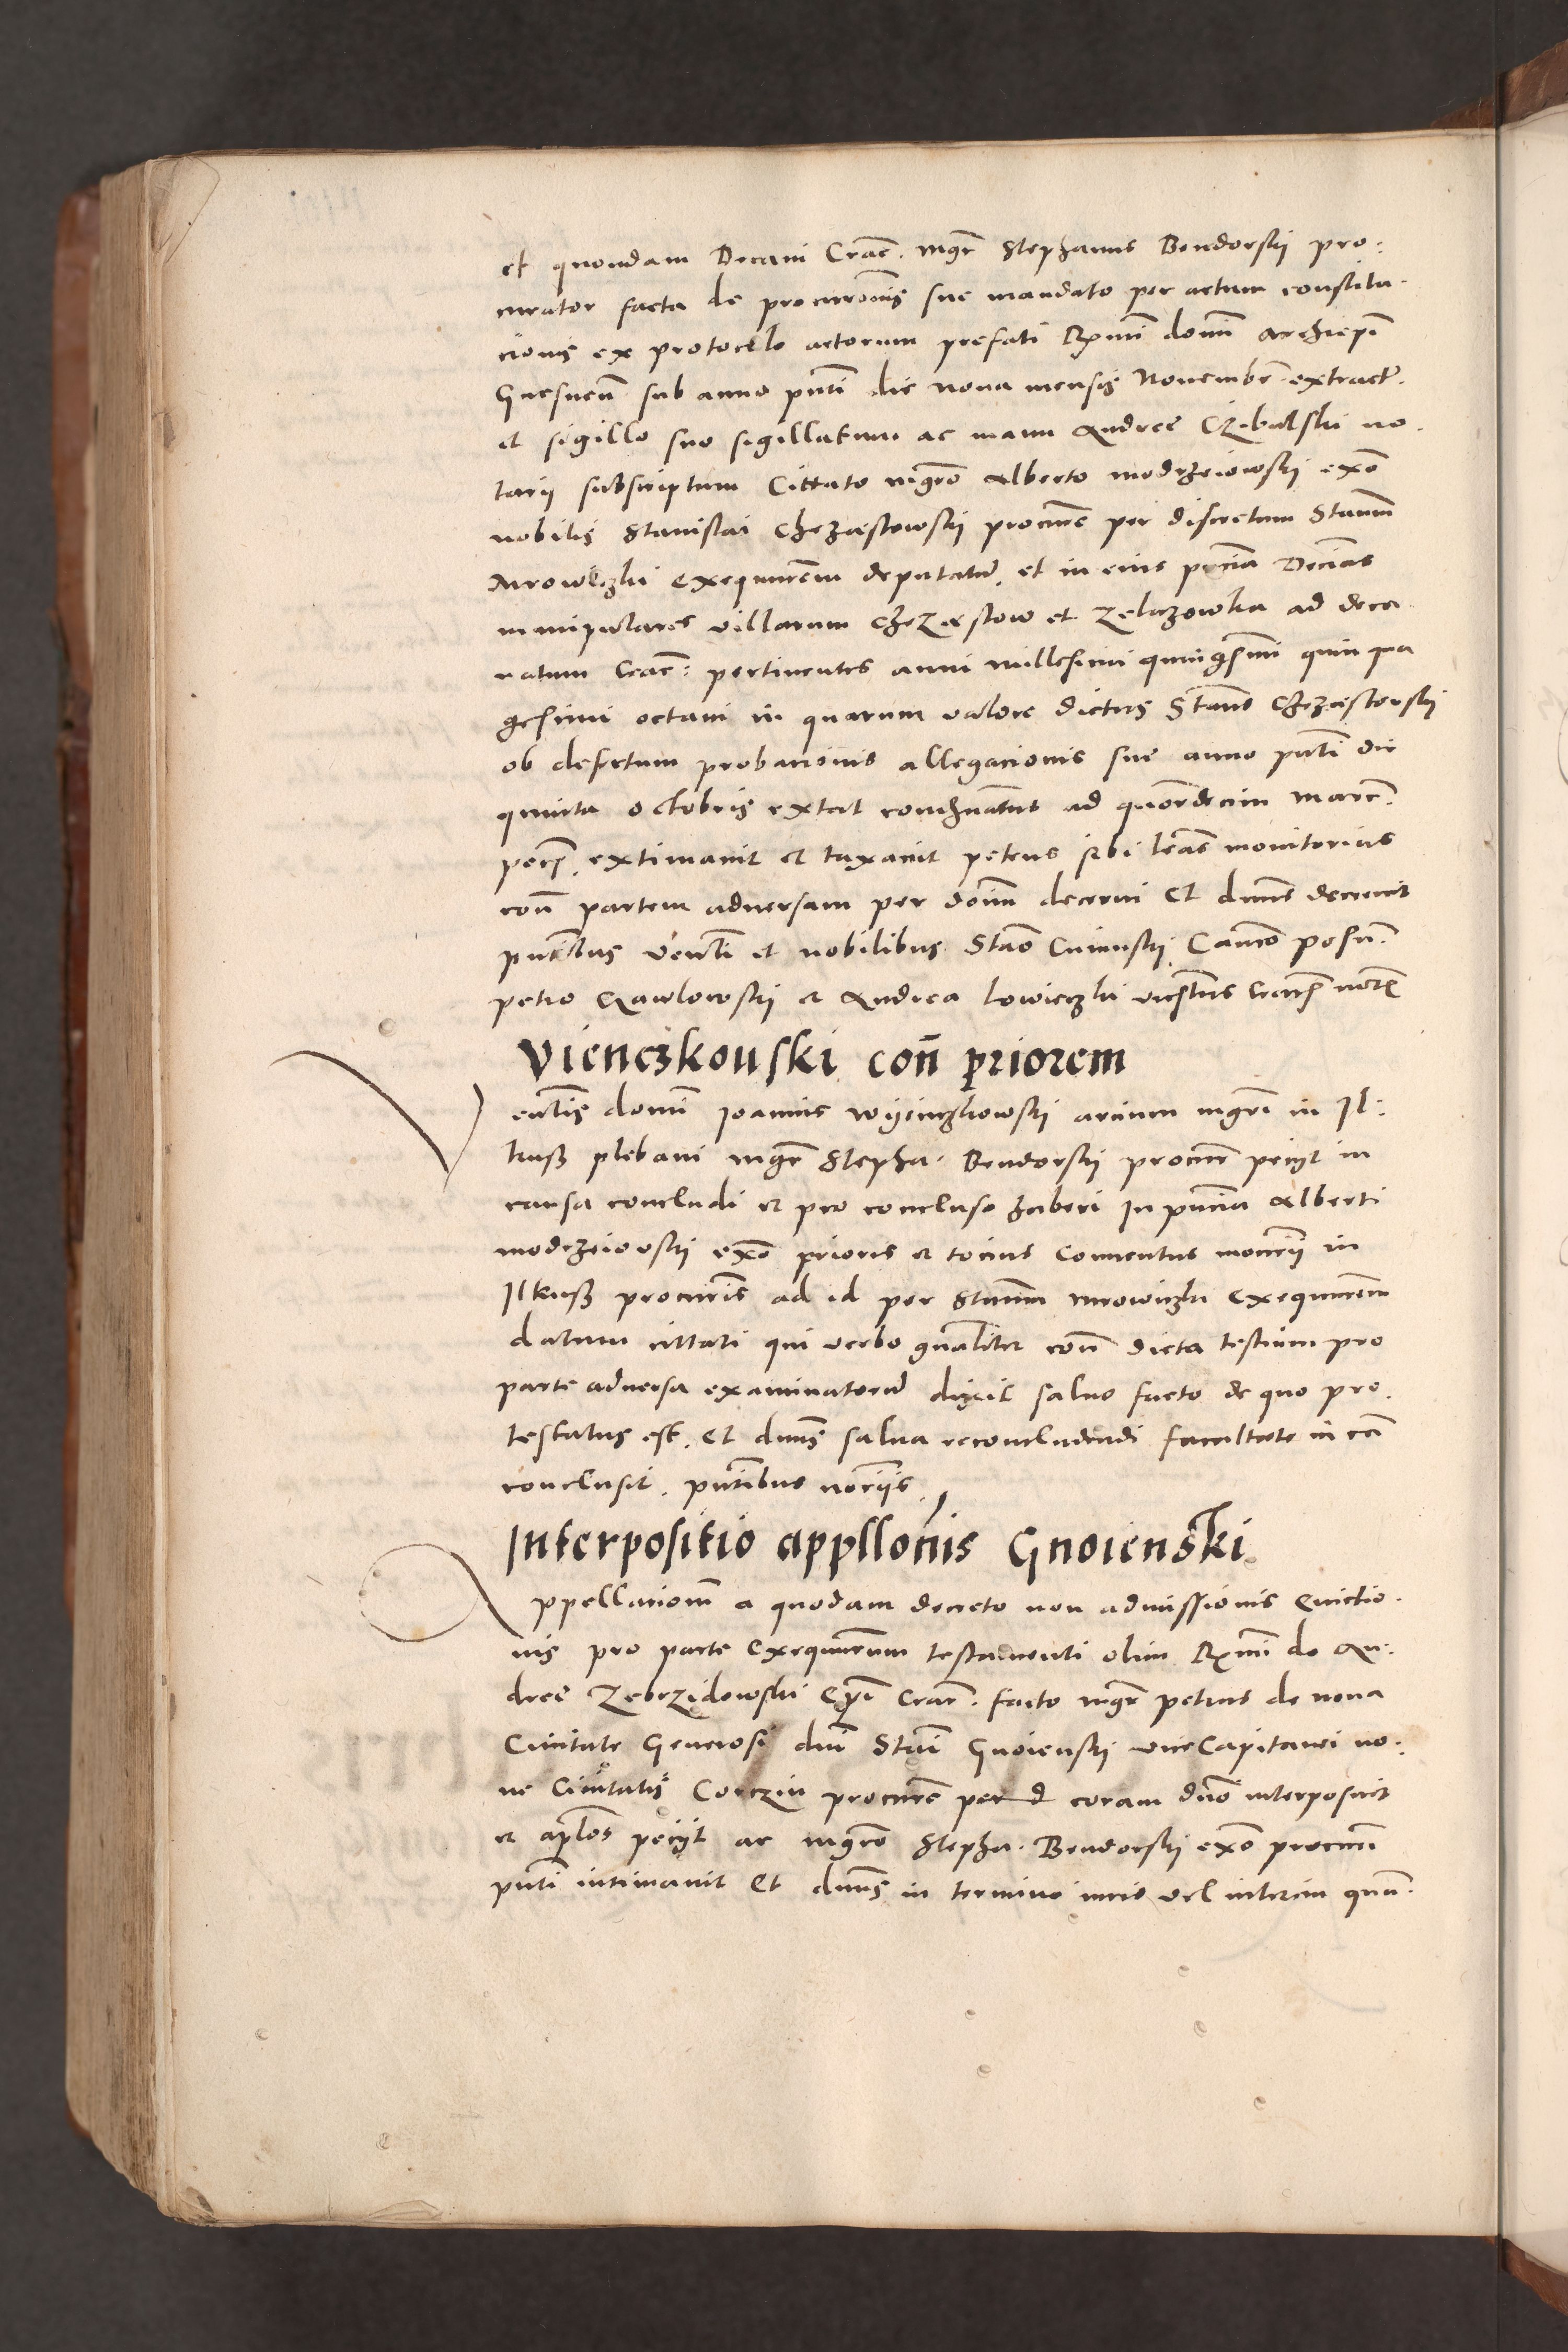 et quondam Decani Crac. mgr Stephanus Bendorski pro:
curator facta de procuronis sue mandato per actum constitu-
cionis ex protocolo actorum prefati Rxmi domi Archiepi
Gnesnen sub anno pnti die nona mensis Novembr. extract.
et sigillo suo sigillatum ac manu Andree Czibulski no-
tarii subscriptum Cittato mgro Alberto modrzeiowski exo
nobilis Stanislai Chrzastowski procure per discretum Stanm
Mrowiczki exequurem deputatum et in eius pncia Decias
manipulares villarum Chrzastow et Zeluzowka ad deca
natum Crac: pertinentes anni millesimi quingsmi quinqua
gesimi octavi in quarum valore dictus Stans Chrzastowski
ob defectum probacionis allegacionis sue anno pnti die
quinta octobris extat condnatus ad quordecim marc.
pecs. extimavit et taxavit petens sibi lras monitorias
con partem adversam per donm decerni Et dnns decrevit
pntibus venli et nobilibus Stao Cuiewski Canco posn.
petro Czawlowski et Andrea Lowiczki vicstus Cracs notrs
Vienczkouski con priorem
Venlis domi Joannis Wyienczkowski arcium mgri in Il:
kusz plebani mgr Stepha. Bendorski procur peciit in
causa concludi et pro concluso haberi In pncia Alberti
modrzeiowski exo prioris et tocius Conventus moncrii in
Ilkusz procuris ad id per Stanm mrowiczki Exequurem
datum cittati qui verbo gnaliter con dicta testium pro
parte adversa examinatorum dixit salvo facto de quo pro-
testatus est. Et dnns salva reconcludendi facultate in ca
conclusit. pntibus noriis
Interpositio appllonis Gnoienski
Appellacionem a quodam decreto non admissionis Evictio-
nis pro parte Exequurum testamenti olim Rxmi do An-
dree Zebrzidowski Epi Crac. facto mgr petrus de nova
Civitate Generosi dni Stai Gnoienski viceCapitanei no-
ve Civitatis Corczin procure per d coram dno interposuit
et aplos peciit ac mgro Stepha. Bendorski exo procuri
pnti intimavit Et dnns in termino iuris vel interim quan-